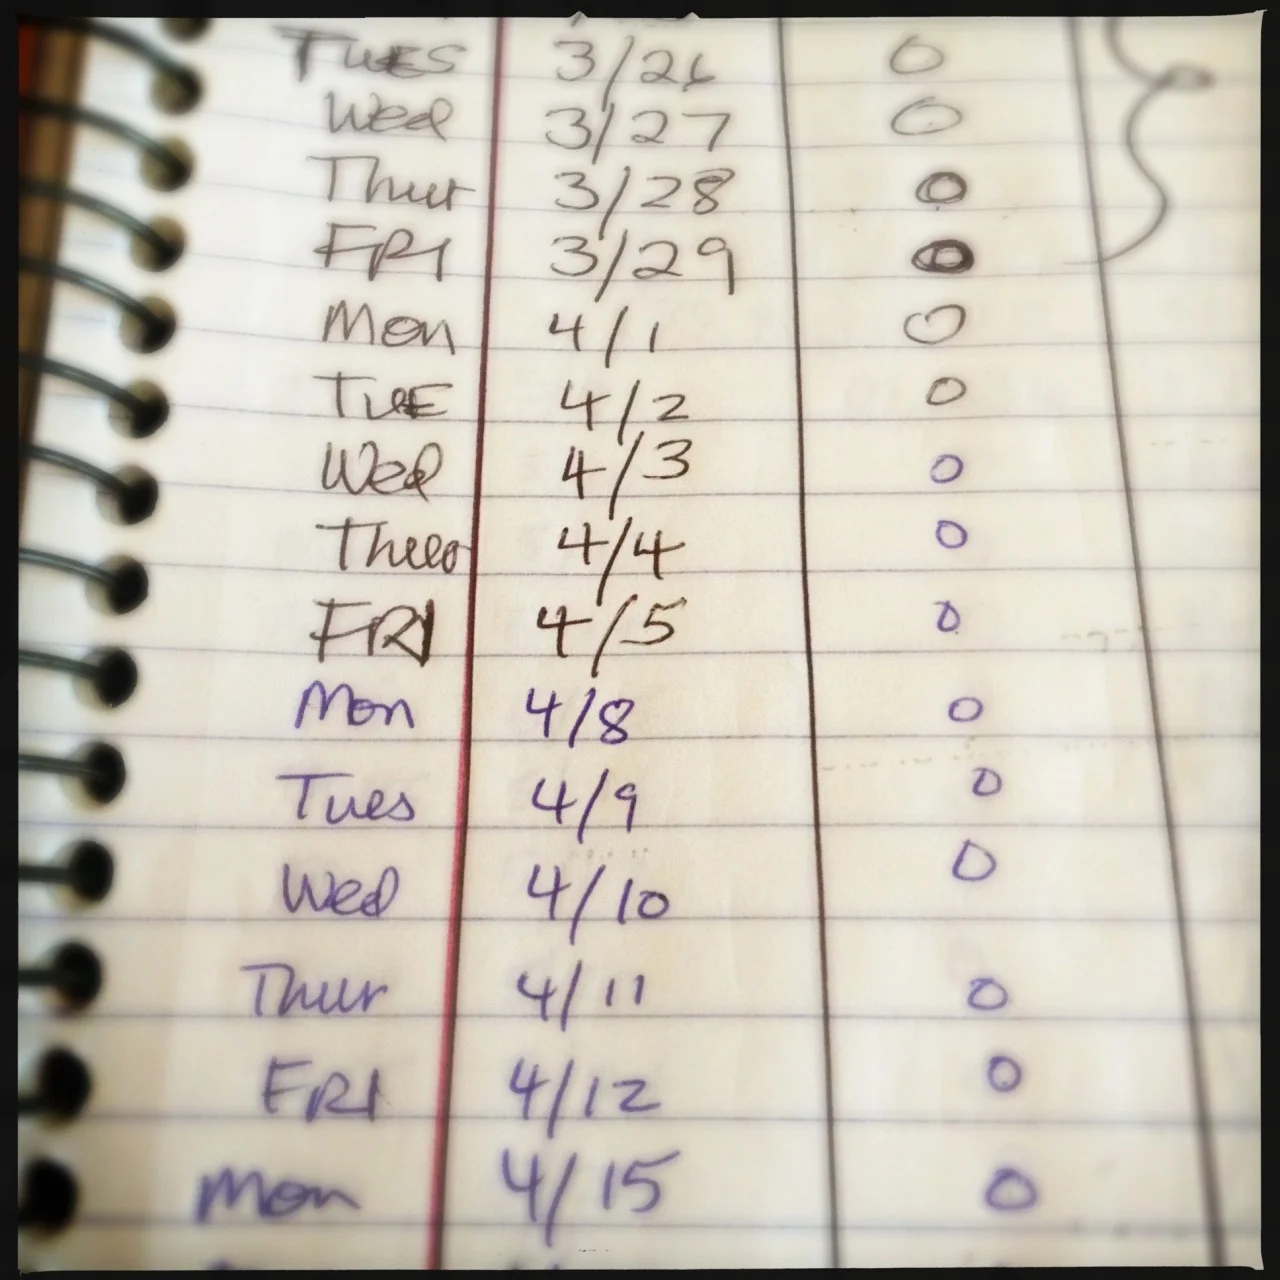 TUES 3/26 0
Wed 3/27 0
Thur 3/28 0
FRI 3/29 0
Mon 4/1 0
TUE 4/2 0
Wed 4/3 0
Thur 4/4 0
FRI 4/5 0
Mon 4/8 0
Tues 4/9 0
Wed 4/10 0
Thur 4/11 0
FRI 4/12 0
Mon 4/15 0